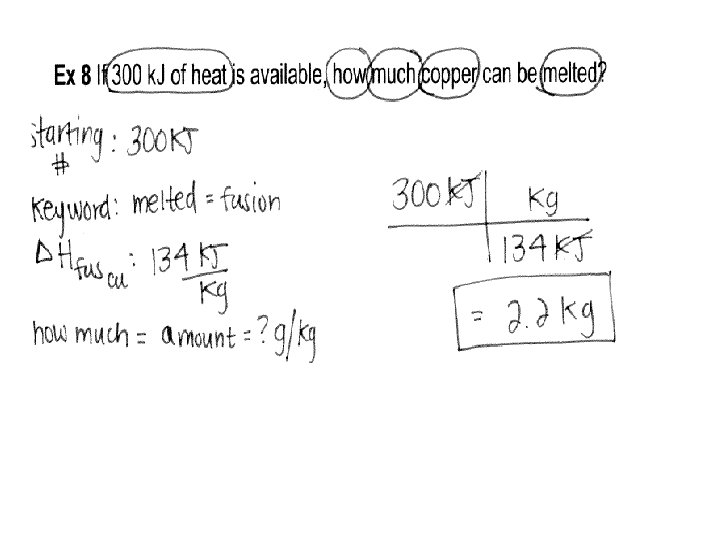 Ex 8 If 300 kJ of heat is available, how much copper can be melted?
starting : 300 KJ
#
Keyword: melted = fusion
ΔHfus cu : 134 KJ
Kg
how much = amount = ? g/kg
300 KJ | Kg
134 KJ
= 2.2 Kg